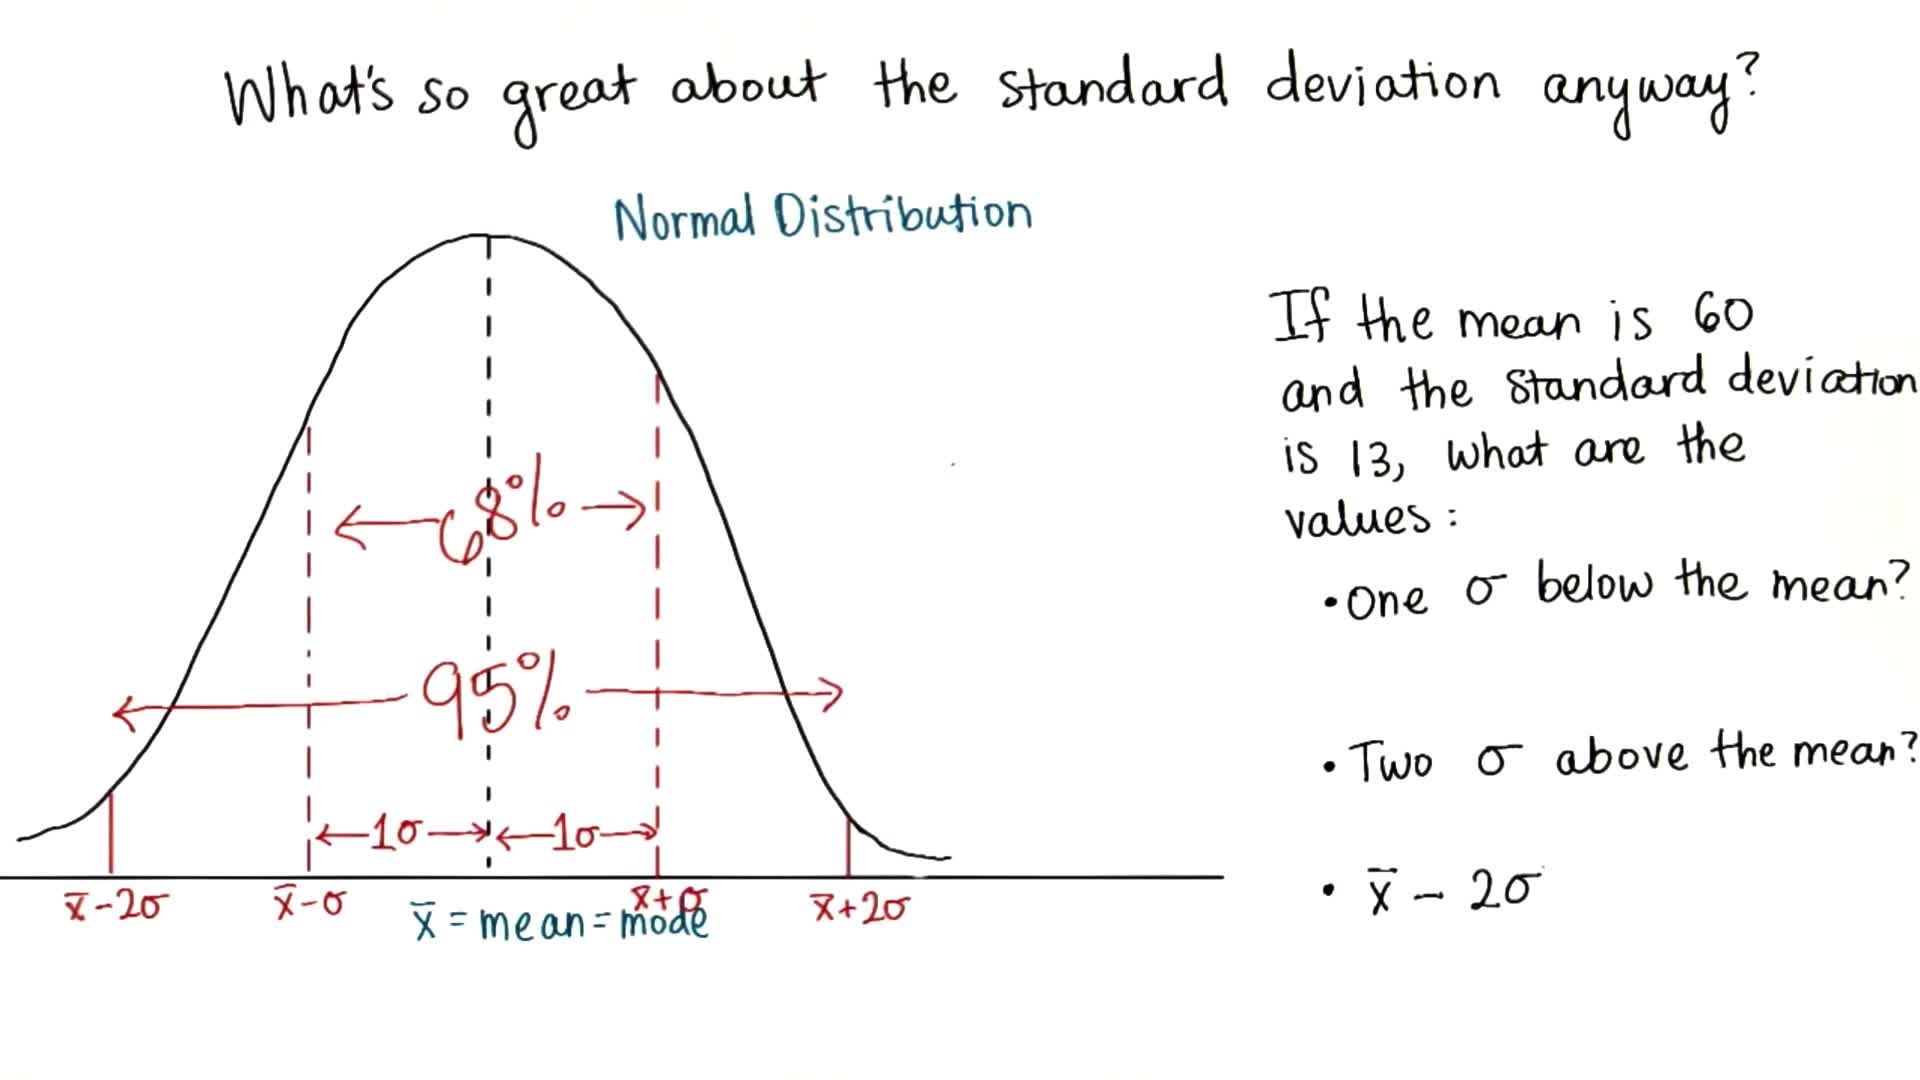 What's so great about the standard deviation anyway?
Normal Distribution
68%
95%
1σ
1σ
x̄-2σ
x̄-σ
x̄ = mean = mode
x̄+σ
x̄+2σ
If the mean is 60
and the standard deviation
is 13, what are the
values:
• One σ below the mean?
• Two σ above the mean?
• x̄ - 2σ